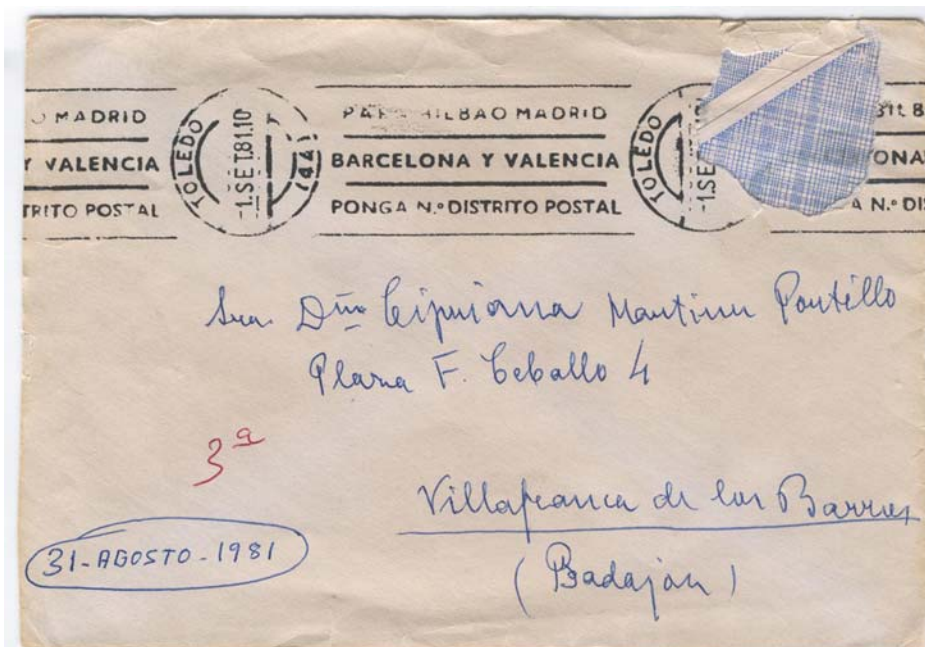 MADRID
Y VALENCIA
TRITO POSTAL
TOLEDO
-1.SET.81.10
PARA BILBAO MADRID
BARCELONA Y VALENCIA
PONGA N.º DISTRITO POSTAL
TOLEDO
-1.SE
BIL B
ONA
A N.º DIS
Sra. Dña Cipriana Martinez Portillo
Plaza F. Ceballo 4
3ª
Villafranca de los Barros
31-AGOSTO-1981
(Badajoz)